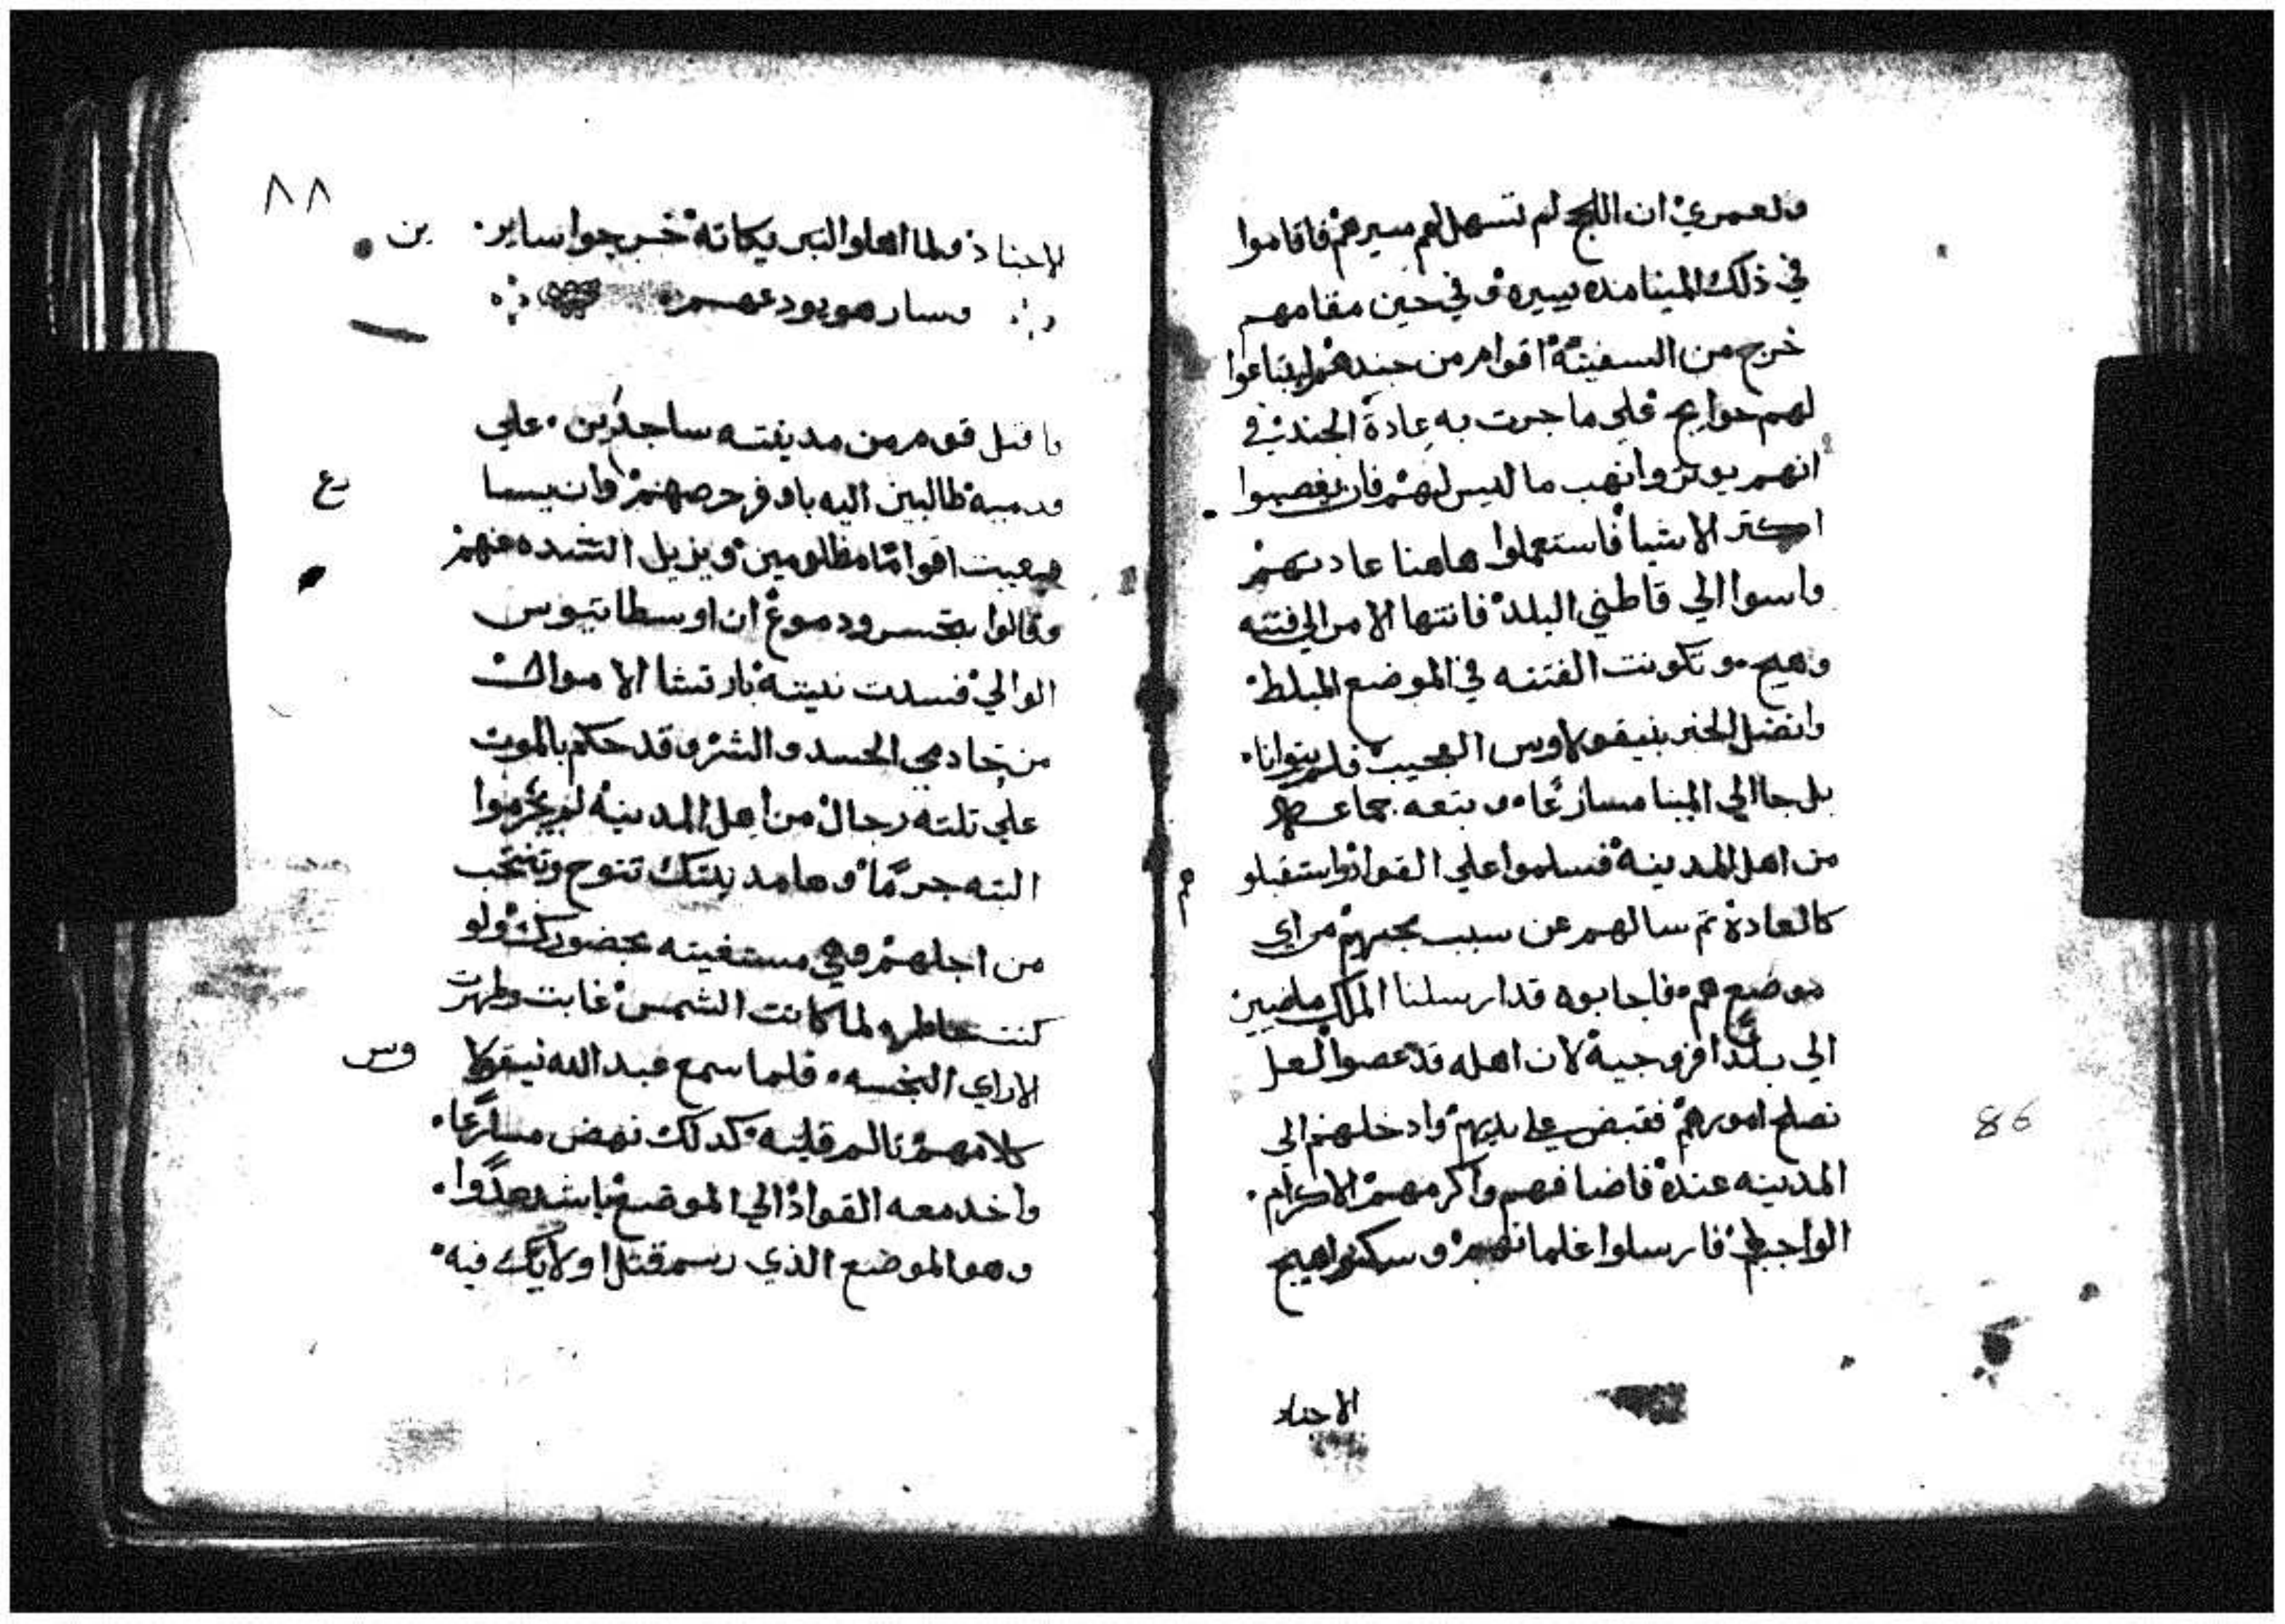 ولعمري ان اللجج لم تسهل لهم سيرهم فاقاموا
في ذلك المينا مده يسيره وفي حين مقامهم
خرج من السفينة اقوام من جندهم ليبتاعوا
لهم حوايج علي ما جرت به عادة الجند في
انهم يوتروا نهب ما ليس لهم فاريغصبوا
اكتر الاشيا فاستعملوا هاهنا عادتهم
واسوا الي قاطني البلد فانتها الامر الي فتنه
وهيج وتكونت الفتنه في الموضع المبلط
واتصل الخبر بنيقولاوس العجيب فلم يتوانا
بل جا الي المينا مسارعًا وتبعه جماعه
من اهل المدينة فسلموا علي القواد واستقبلو
هم
كالعادة تم سالهم عن سبب مجيهم من اي
موضع هم فاجابوه قد ارسلنا الملك ماضيين
الي بلد افروجية لان اهله قد عصوا لعل
نصلح امورهم فقبض علي يديهم وادخلهم الي
86
المدينه عنده فاضافهم واكرمهم الاكرام
الواجب فارسلوا غلمانهم وسكنوا هيج
الاجناد
٨٨
الاجناد ولما اهلوا التبريكاته خرجوا سايرين
وسار هو يودعهم
فاقبل قوم من مدينته ساجدين علي
قدميه طالبين اليه باوفر حرصهم وان يسما
ع
يعيت اقوامًا مظلومين ويزيل الشده عنهم
وقالوا بتحسر ودموع ان اوسطاتيوس
الوالي فسدت نيته بارتشا الاموال
من خادمي الحسد والشر وقد حكم بالموت
علي تلته رجال من اهل المدينه لم يجرموا
البته جرمًا وها مدينتك تنوح وتنتحب
من اجلهم وهي مستغيته بحضورك ولو
كنت حاضره لما كانت الشمس غابت وظهرت
الاراي النجسه فلما سمع عبد الله نيقولا
وس
كلامهم تالم قلبه كدلك نهض مسارعًا
واخد معه القواد الي الموضع باشد عدوا
وهو الموضع الذي رسم قتل اولايك فيه